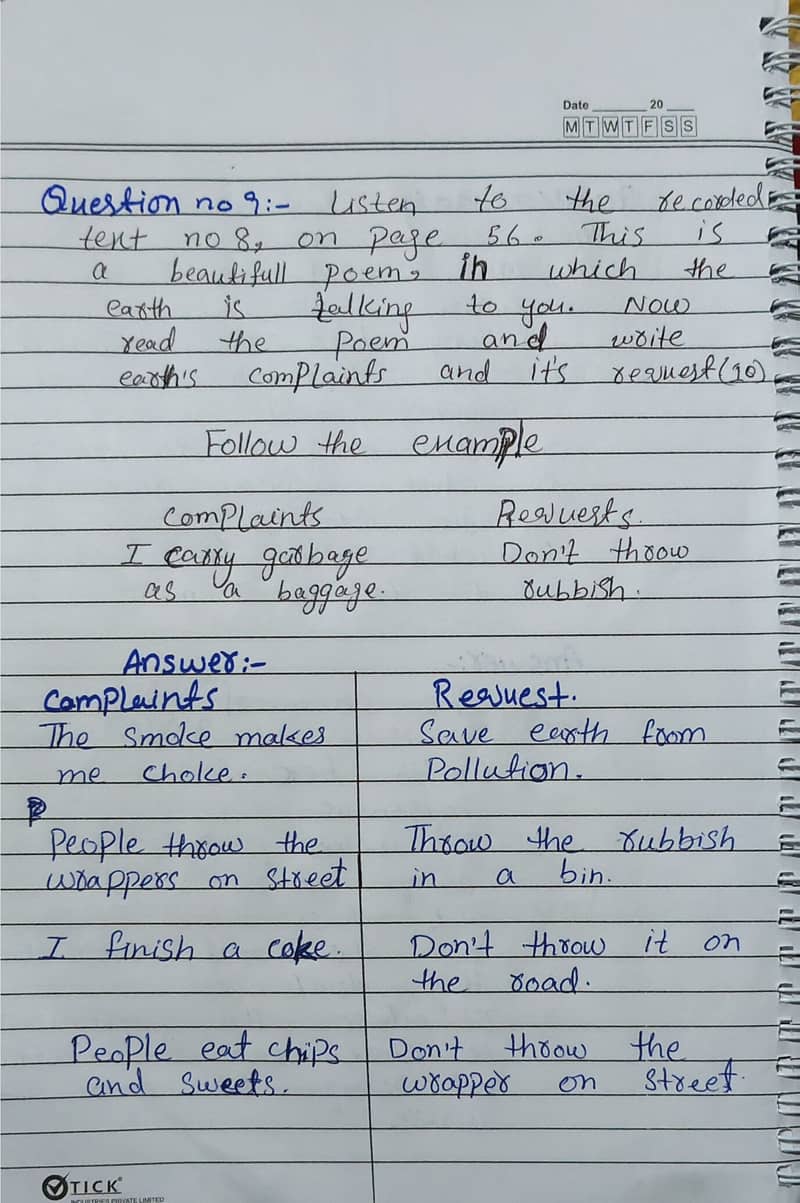 Date ________ 20 ____
M T W T F S S
Question no 9:- Listen to the recorded
text no 8, on page 56. This is
a beautifull poem, in which the
earth is talking to you. Now
read the poem and write
earth's complaints and it's request(10)
Follow the example
Complaints Requests.
I carry garbage Don't throw
as a baggage. rubbish.
Answer:-
Complaints Request.
The smoke makes Save earth from
me choke. Pollution.
People throw the Throw the rubbish
wrappers on street in a bin.
I finish a coke. Don't throw it on
the road.
People eat chips Don't throw the
and sweets. wrapper on street.
TICK
INDUSTRIES PRIVATE LIMITED